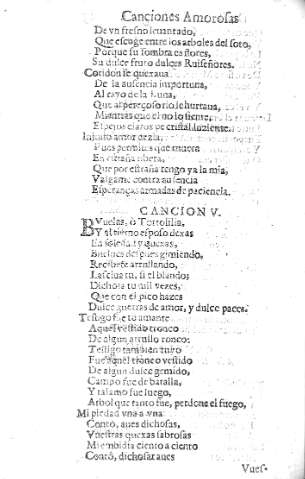 Canciones Amorosas
De vn fresno leuantado,
Que escoge entre los arboles del soto,
Porque su sombra es flores,
Su dulce fruto dulces Ruiseñores.
Coridon se quexaua
De la ausencia importuna,
Al rayo de la Luna,
Que al pereçoso rio le hurtaua,
Mientras que el no lo siente,
Espejos claros de cristal luziente.
Injusto amor dezia,
Pues permites que muera
En estraña ribera,
Que por estraña tengo ya la mia,
Valgame contra ausencia
Esperanças armadas de paciencia.
CANCION V.
BVuelas, ò Tortolilla,
Y al tierno esposo dexas
En soledad y quexas,
Buelues despues gimiendo,
Recibete arrullando,
Lasciua tu, si el blando;
Dichosa tu mil vezes,
Que con el pico hazes
Dulce guerras de amor, y dulce paces.
Testigo fue tu amante
Aquel vestido tronco
De algun arrullo ronco:
Testigo tambien tuyo
Fue aquel tronco vestido
De algun dulce gemido,
Campo fue de batalla,
Y talamo fue luego,
Arbol que tanto fue, perdone el fuego,
Mi piedad vna a vna
Contò, aues dichosas,
Vuestras quexas sabrosas
Mi embidia ciento a ciento
Contò, dichosas aues
Vues-